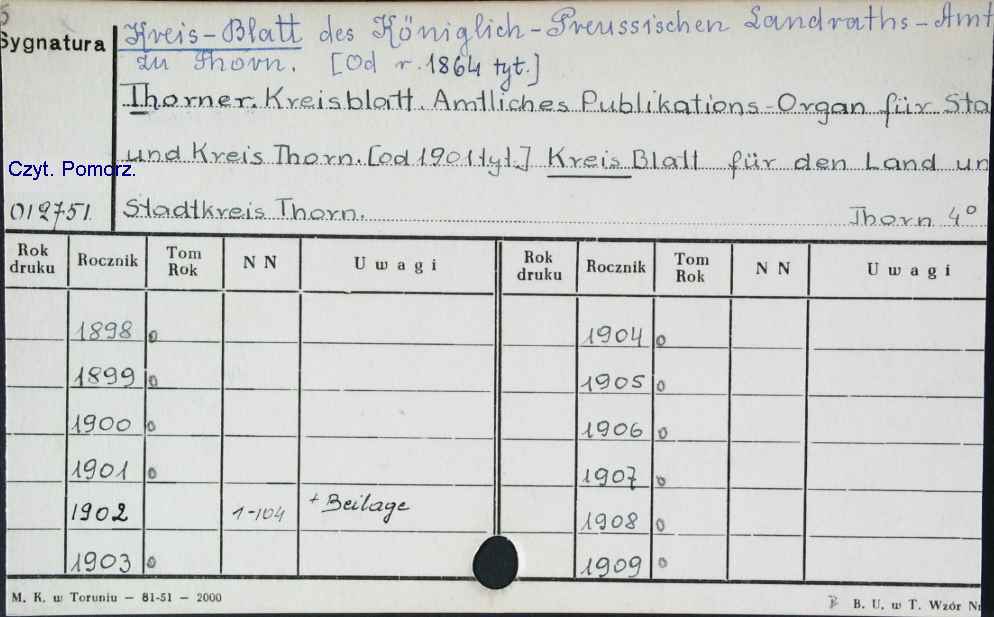 Sygnatura
Kreis-Blatt des Königlich-Preussischen Landraths-Amt
zu Thorn. [Od r. 1864 tyt.]
Thorner Kreisblatt. Amtliches Publikations-Organ für Sta
und Kreis Thorn. [od 1901 tyt.] Kreis Blatt für den Land un
Czyt. Pomorz.
012751 Stadtkreis Thorn. Thorn 4°
Rok druku Rocznik Tom Rok N N Uwagi Rok druku Rocznik Tom Rok N N Uwagi
1898 o 1904 o
1899 o 1905 o
1900 o 1906 o
1901 o 1907 o
1902 1-104 + Beilage 1908 o
1903 o 1909 o
M. K. w Toruniu — 81-51 — 2000 B. U. w T. Wzór Nr